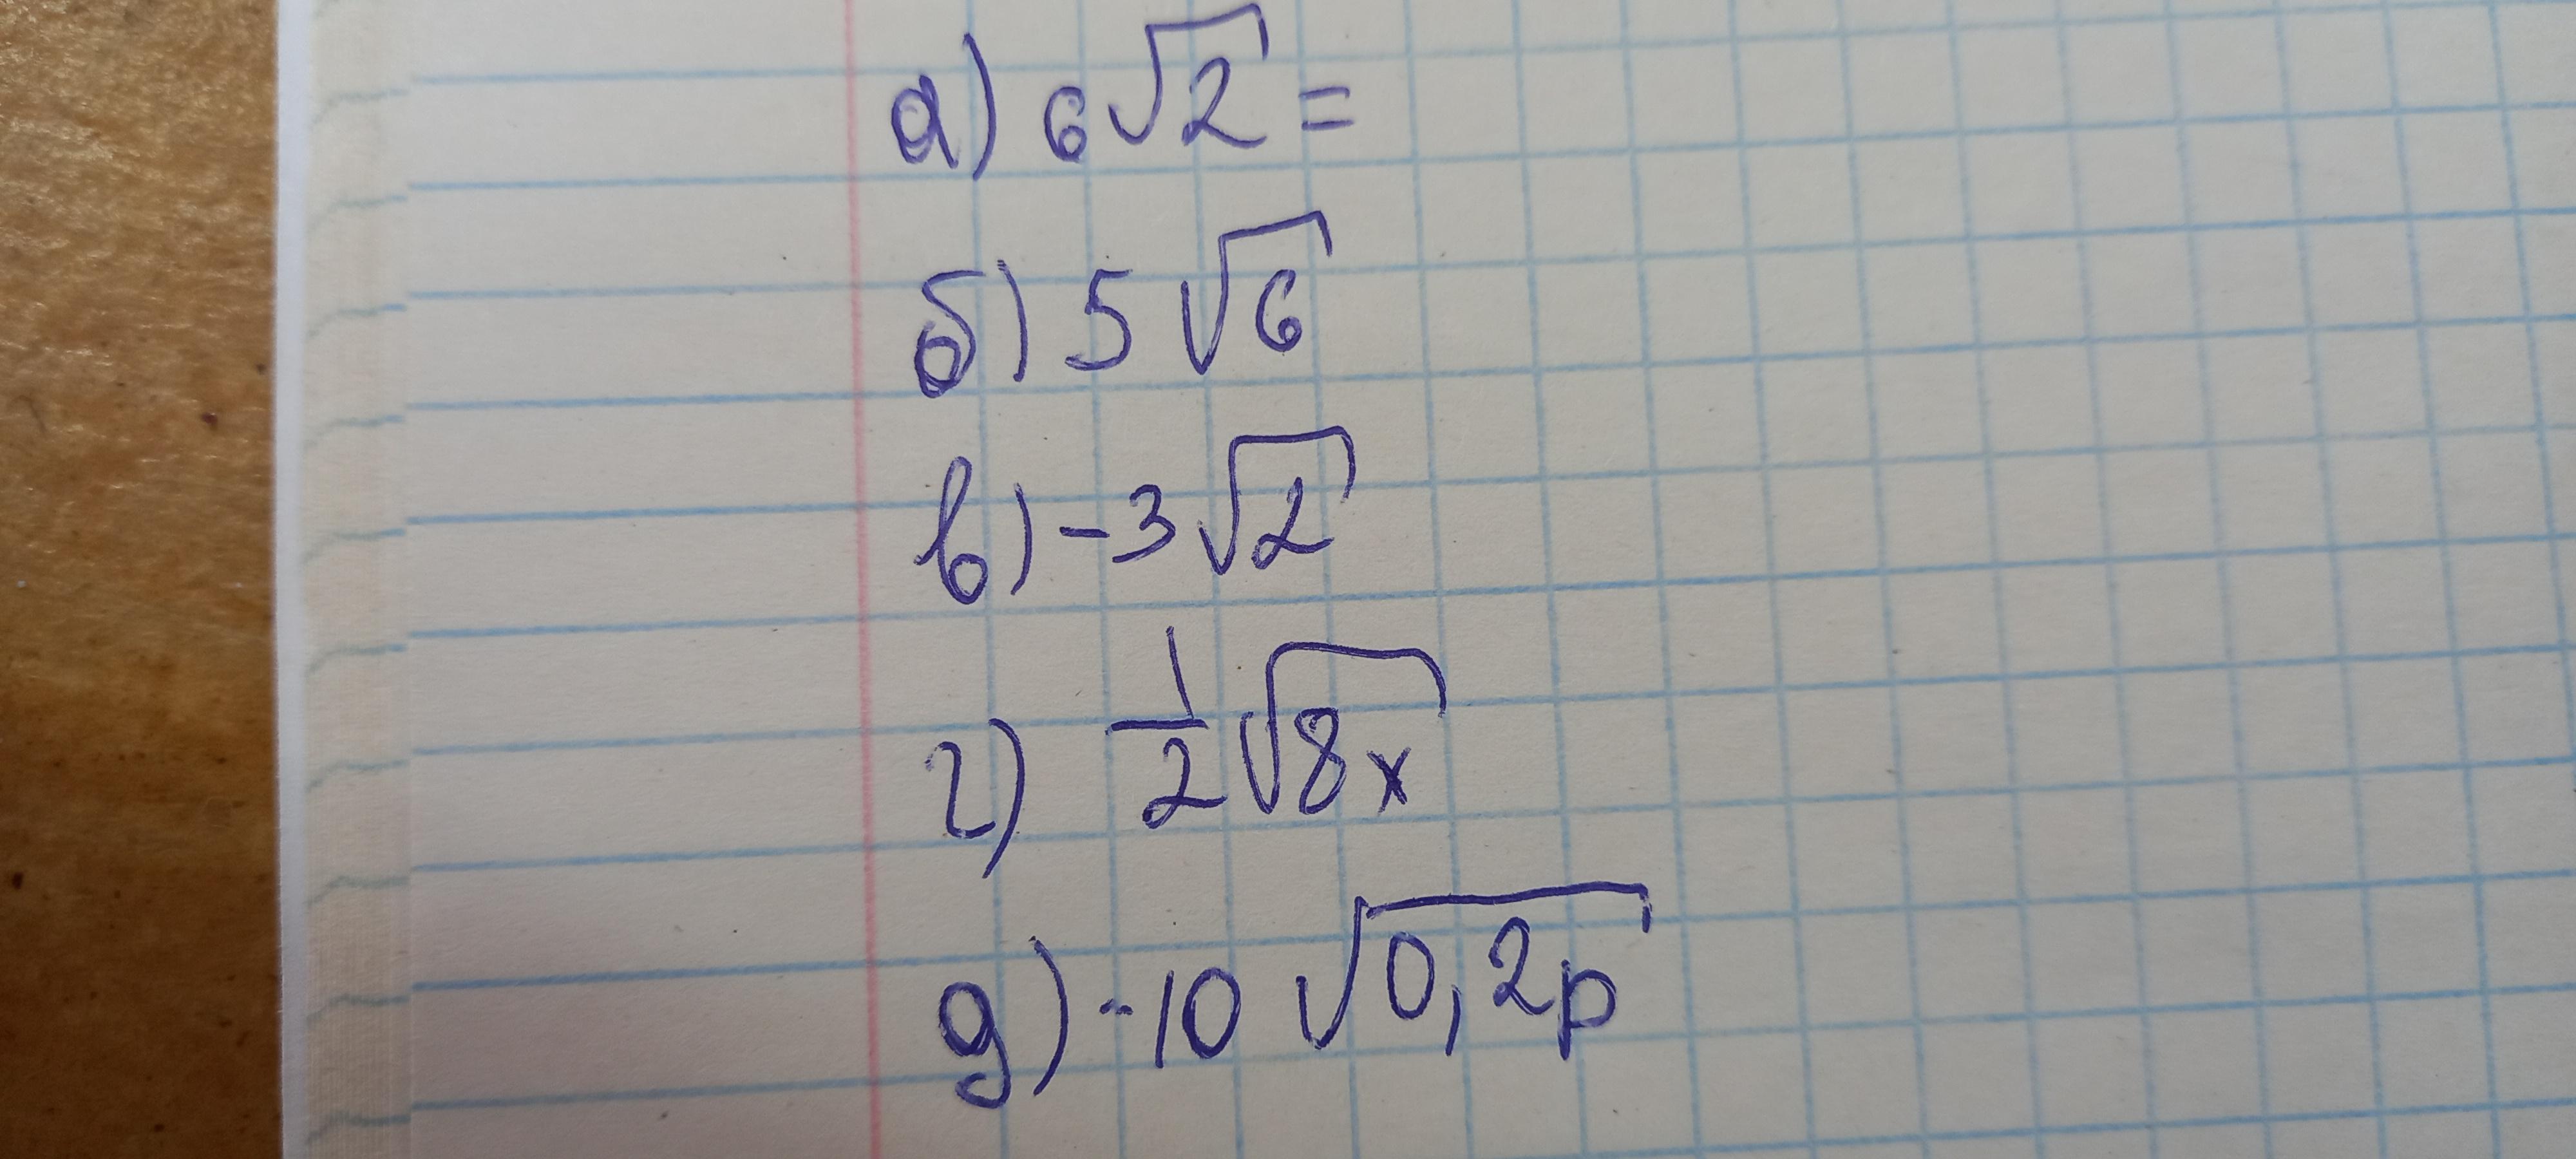 а) 6√2 =
б) 5√6
в) -3√2
г) 1/2√8x
д) -10√0,2p